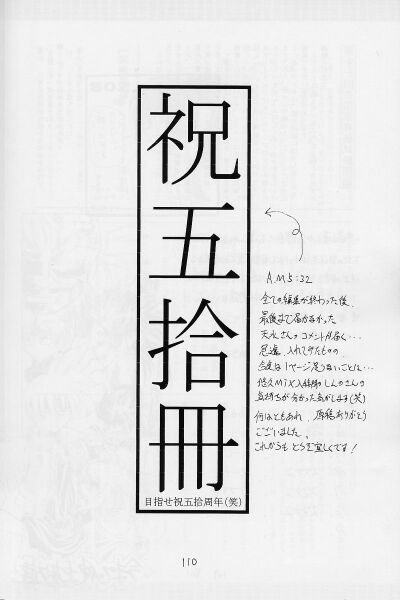 祝五拾冊
目指せ祝五拾周年(笑)
A.M 5:32
全ての編集が終わった後、
最後まで届かなかった
天水さんのコメントが届く…
急遽、入れてみたものの
今度は1ページ足りないことに…
悠久MIX入稿時のしんのさんの
気持ちが分かった気がします(笑)
何はともあれ、原稿ありがとう
ございました。
これからもどうぞ宜しくです!
110